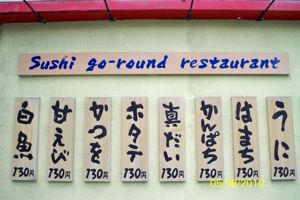 Sushi go-round restaurant
うに
130円
はまち
130円
かんぱち
130円
真だい
130円
ホタテ
130円
かつを
130円
甘えび
130円
白魚
130円
05/05/2010